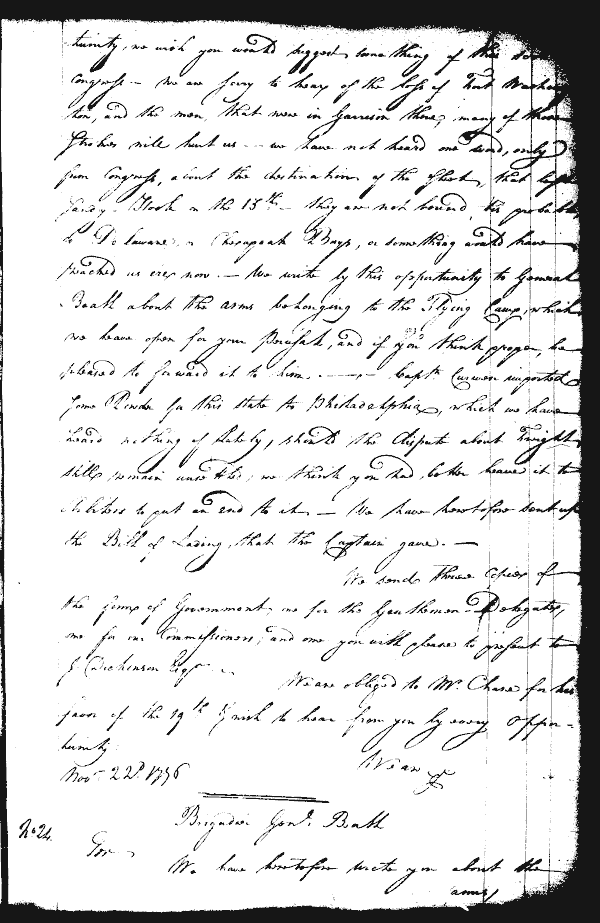 tunity, we wish you would suggest something of this so
Congress — we are sorry to hear of the loss of Fort Washing
ton, and the men, that were in Garrison there, many of those
Strokes will hurt us — we have not heard one word, only
from Congress, about the destination of the Fleet, that left
Sandy Hook on the 15th — they are not bound, tis probable
to Delaware or Chesapeak Bays, or something would have
reached us ere now. — We write by this opportunity to General
Beall about the arms belonging to the Flying Camp, which
we leave open for your Perusal, and if you think proper, be
pleased to forward it to him. — Capt. Curwen imported
some Powder for this State to Philadelphia, which we have
heard nothing of lately, should the dispute about Freight
still remain unsettled, we think you had better leave it to
Arbiters to put an end to it. — We have heretofore sent up
the Bill of Lading, that the Captain gave. —
We send three Copies of
the form of Government, one for the Gentlemen Delegates,
one for our Commissioners, and one you will please to present to
J. Dickinson Esqr.
We are obliged to Mr. Chase for his
favor of the 19th & wish to hear from you by every oppor-
tunity.
We are &
Novr. 22d. 1776
Brigadier Genl. Beall
No 24.
Sir
We have heretofore wrote you about the
arms,